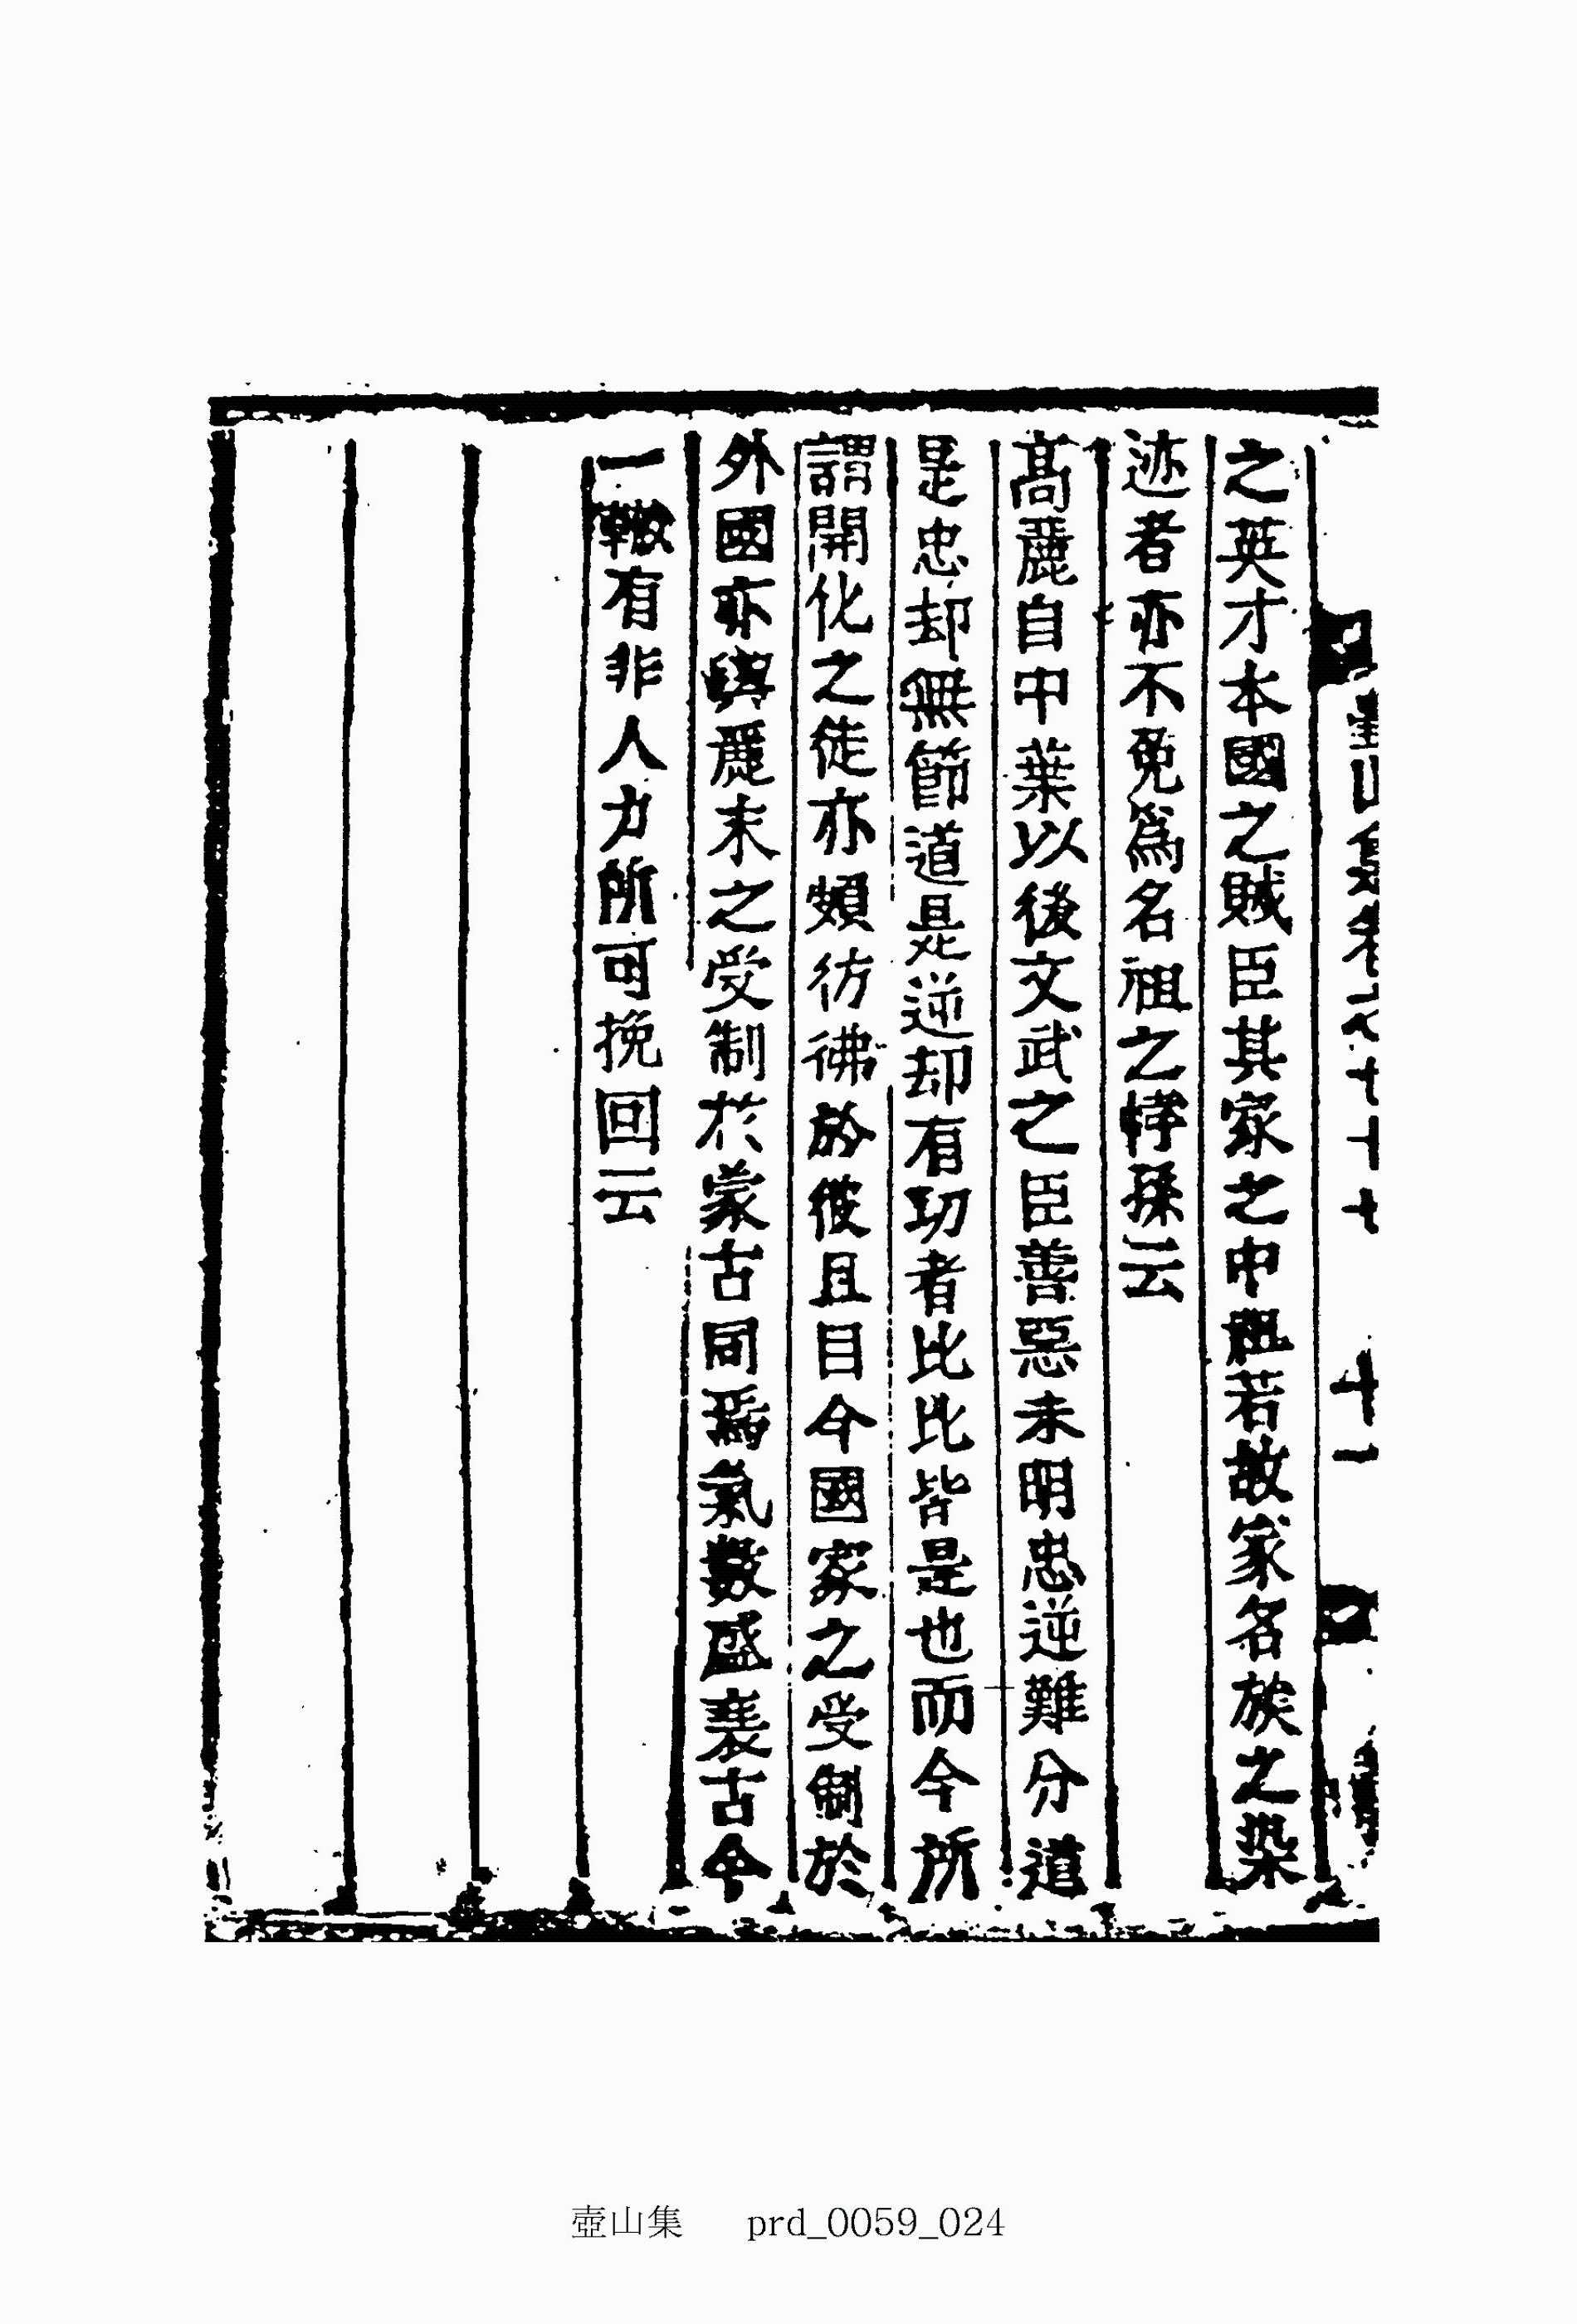 之英才本國之賊臣其家之中祖若故家名族之染
迹者亦不免爲名祖之悖孫云
高麗自中葉以後文武之臣善惡未明忠逆難分道
是忠却無節道是逆却有功者比比皆是也而今所
謂開化之徒亦頗彷彿於彼且目今國家之受制於
外國亦與麗末之受制於蒙古同爲氣數盛衰古今
一轍有非人力所可挽回云
十一
壺山集 prd_0059_024